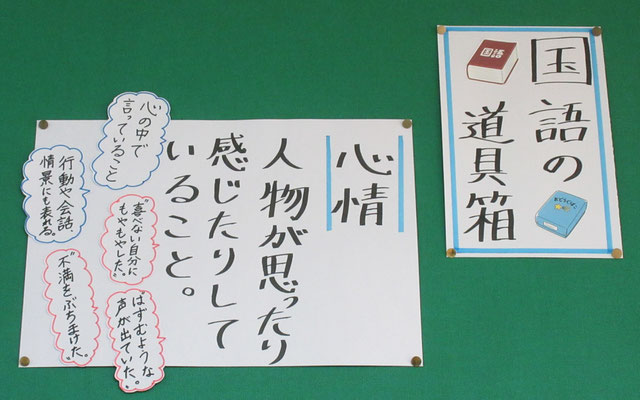 国語の
道具箱
国語
心情
人物が思ったり
感じたりして
いること。
心の中で
言っていること
行動や会話、
情景にも表れる。
“喜べない自分に
もやもやした。”
“はずむような
声が出ていた。”
“不満をぶちまけた。”